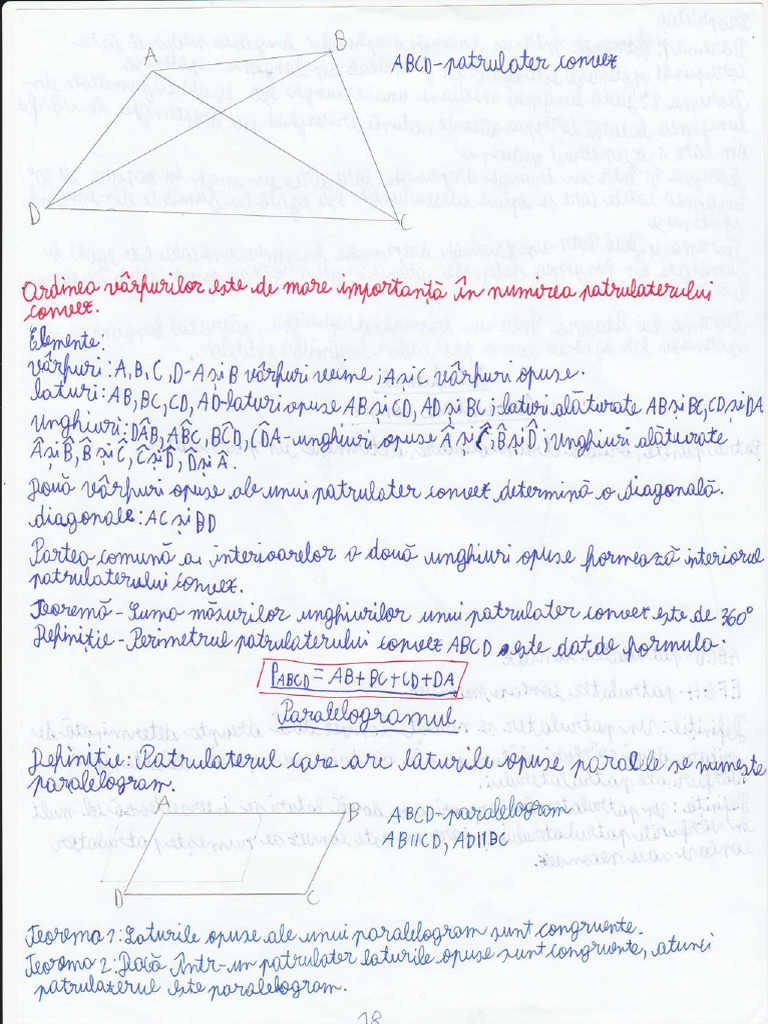 A
B
ABCD-patrulater convex
D
C
Ordinea vârfurilor este de mare importanță în numirea patrulaterului
convex.
Elemente:
vârfuri: A, B, C, D-A și B vârfuri vecine; A și C vârfuri opuse.
laturi: AB, BC, CD, AD-laturi opuse AB și CD, AD și BC; laturi alăturate AB și BC, CD și DA
Unghiuri: DÂB, AB̂C, BĈD, CD̂A-unghiuri opuse Â și Ĉ; B̂ și D̂; Unghiuri alăturate
Â și B̂, B̂ și Ĉ, Ĉ și D̂, D̂ și Â.
Două vârfuri opuse ale unui patrulater convex determină o diagonală.
diagonale: AC și BD
Partea comună a interioarelor a două unghiuri opuse formează interiorul
patrulaterului convex.
Teoremă-Suma măsurilor unghiurilor unui patrulater convex este de 360°
Definiție-Perimetrul patrulaterului convex ABCD este dat de formula:
P_ABCD = AB+BC+CD+DA
Paralelogramul
Definiție: Patrulaterul care are laturile opuse paralele se numește
paralelogram.
A
B
ABCD-paralelogram
AB||CD, AD||BC
D
C
Teorema 1: Laturile opuse ale unui paralelogram sunt congruente.
Teorema 2: Dacă într-un patrulater laturile opuse sunt congruente, atunci
patrulaterul este paralelogram.